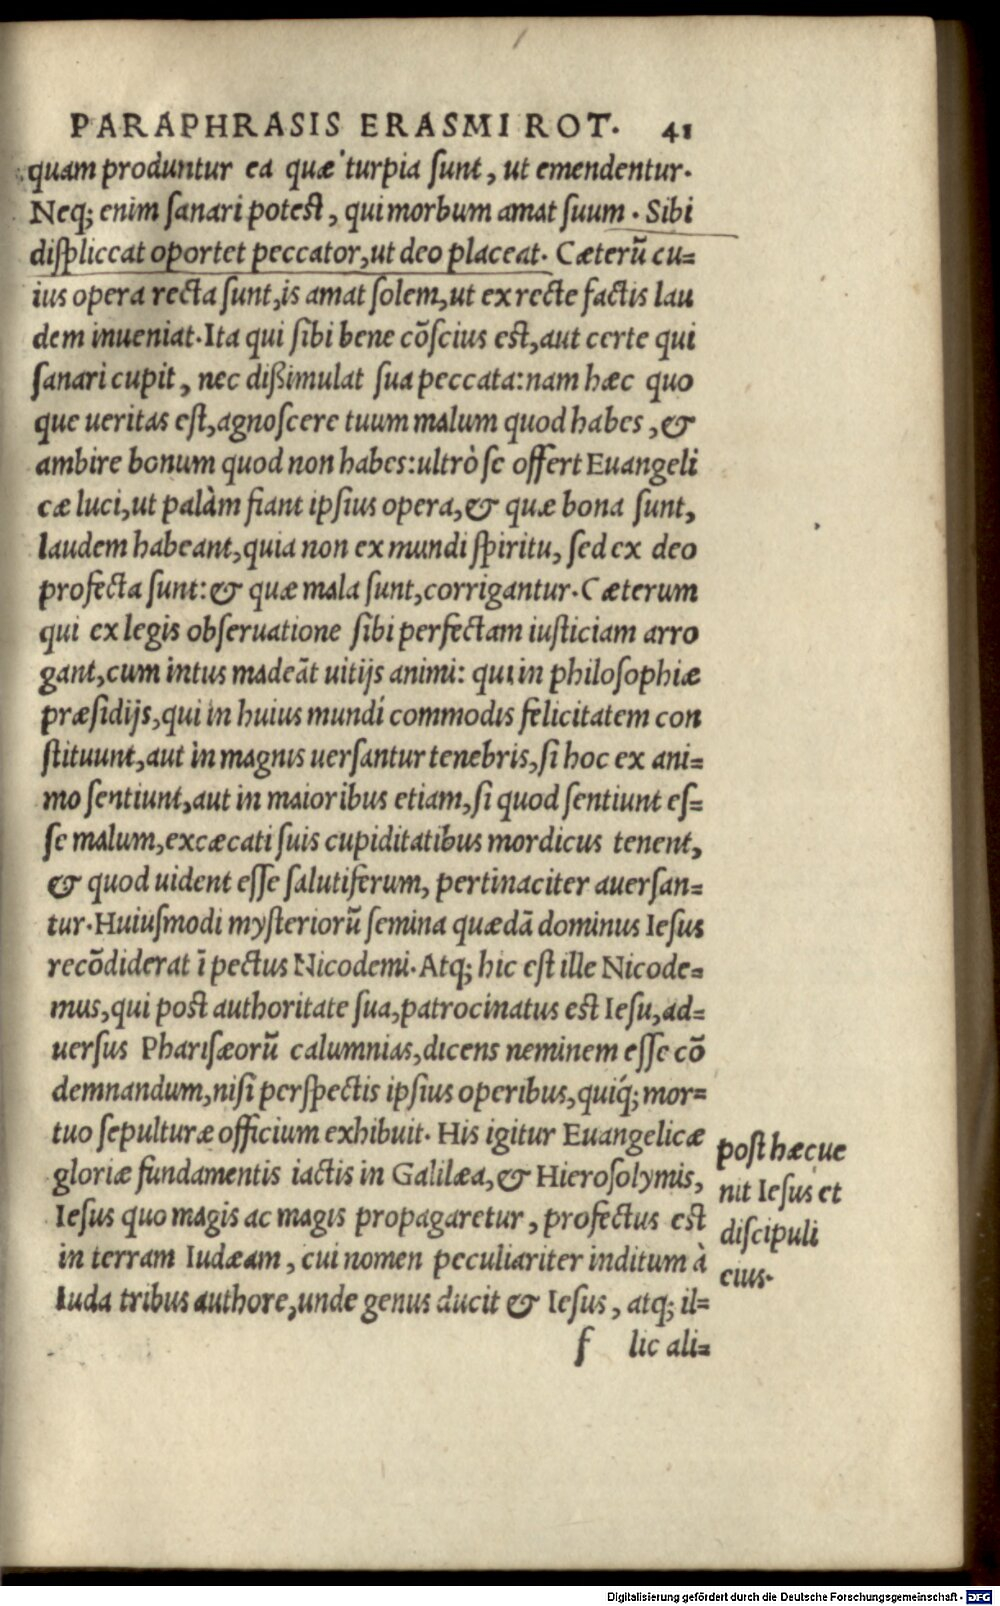 PARAPHRASIS ERASMI ROT. 41
quam produntur ea quæ turpia ſunt, ut emendentur.
Neq; enim ſanari poteſt, qui morbum amat ſuum. Sibi
diſpliceat oportet peccator, ut deo placeat. Cæterũ cu=
ius opera recta ſunt, is amat ſolem, ut ex recte factis lau
dem inueniat. Ita qui ſibi bene cõſcius eſt, aut certe qui
ſanari cupit, nec dißimulat ſua peccata: nam hæc quo
que ueritas eſt, agnoſcere tuum malum quod habes, &
ambire bonum quod non habes: ultrò ſe offert Euangeli
cæ luci, ut palàm fiant ipſius opera, & quæ bona ſunt,
laudem habeant, quia non ex mundi ſpiritu, ſed ex deo
profecta ſunt: & quæ mala ſunt, corrigantur. Cæterum
qui ex legis obſeruatione ſibi perfectam iuſticiam arro
gant, cum intus madeãt uitijs animi: qui in philoſophiæ
præſidijs, qui in huius mundi commodis felicitatem con
ſtituunt, aut in magnis uerſantur tenebris, ſi hoc ex ani=
mo ſentiunt, aut in maioribus etiam, ſi quod ſentiunt eſ=
ſe malum, excæcati ſuis cupiditatibus mordicus tenent,
& quod uident eſſe ſalutiferum, pertinaciter auerſan=
tur. Huiuſmodi myſteriorũ ſemina quædã dominus Ieſus
recõdiderat ĩ pectus Nicodemi. Atq; hic eſt ille Nicode=
mus, qui poſt authoritate ſua, patrocinatus eſt Ieſu, ad=
uerſus Phariſæorũ calumnias, dicens neminem eſſe cõ
demnandum, niſi perſpectis ipſius operibus, quiq́; mor=
tuo ſepulturæ officium exhibuit. His igitur Euangelicæ
gloriæ fundamentis iactis in Galilæa, & Hieroſolymis,
Ieſus quo magis ac magis propagaretur, profectus eſt
in terram Iudæam, cui nomen peculiariter inditum à
Iuda tribus authore, unde genus ducit & Ieſus, atq; il=
f lic ali=
poſt hæc ue
nit Ieſus et
diſcipuli
eius.
Digitalisierung gefördert durch die Deutsche Forschungsgemeinschaft - DFG